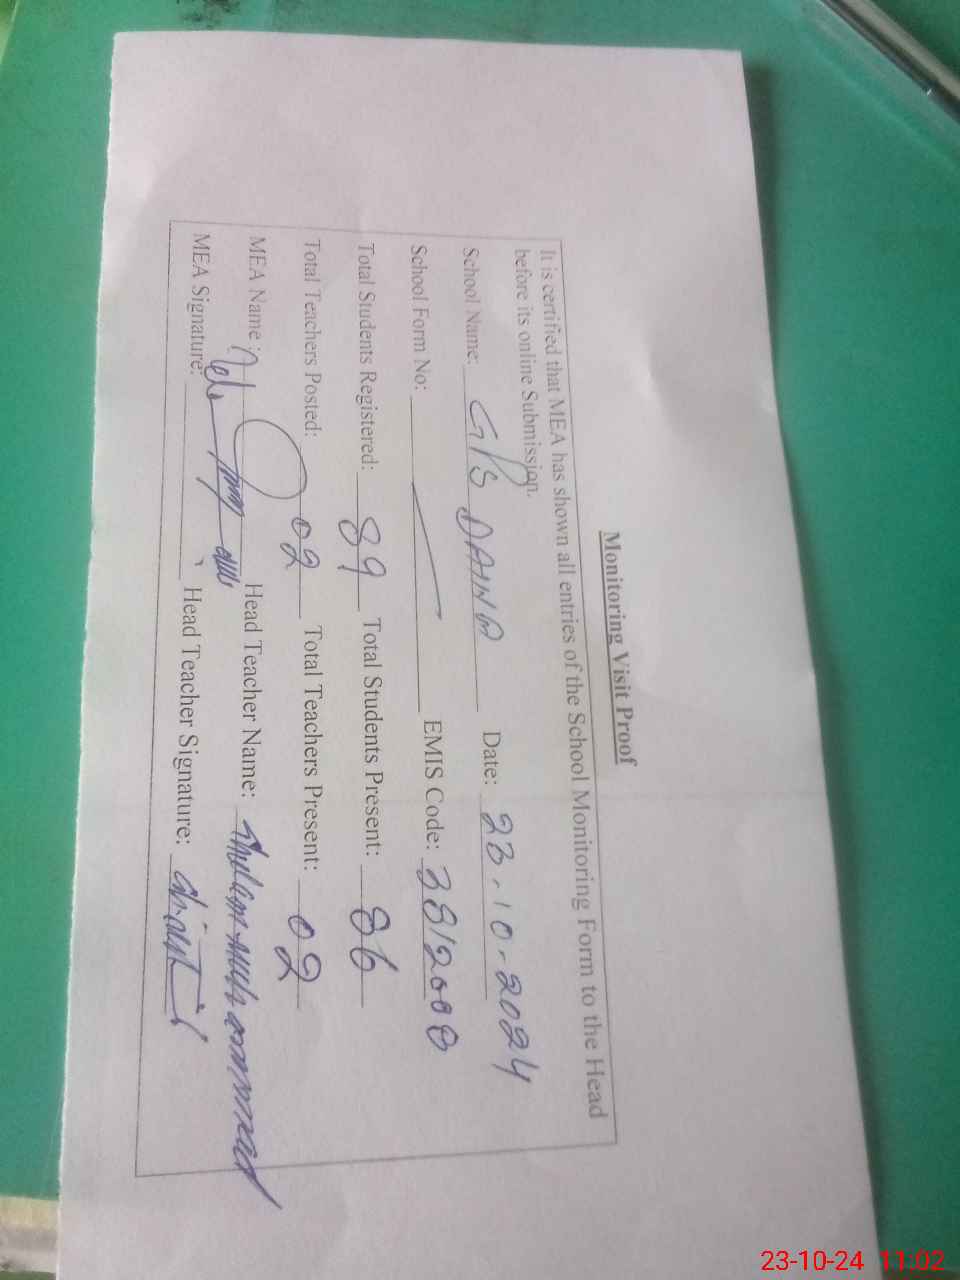 Monitoring Visit Proof
It is certified that MEA has shown all entries of the School Monitoring Form to the Head
before its online Submission.
School Name: GPS DAINA Date: 23.10-2024
School Form No: EMIS Code: 38120008
Total Students Registered: 89 Total Students Present: 86
Total Teachers Posted: 02 Total Teachers Present: 02
MEA Name: Head Teacher Name:
MEA Signature: Head Teacher Signature:
23-10-24 11:02